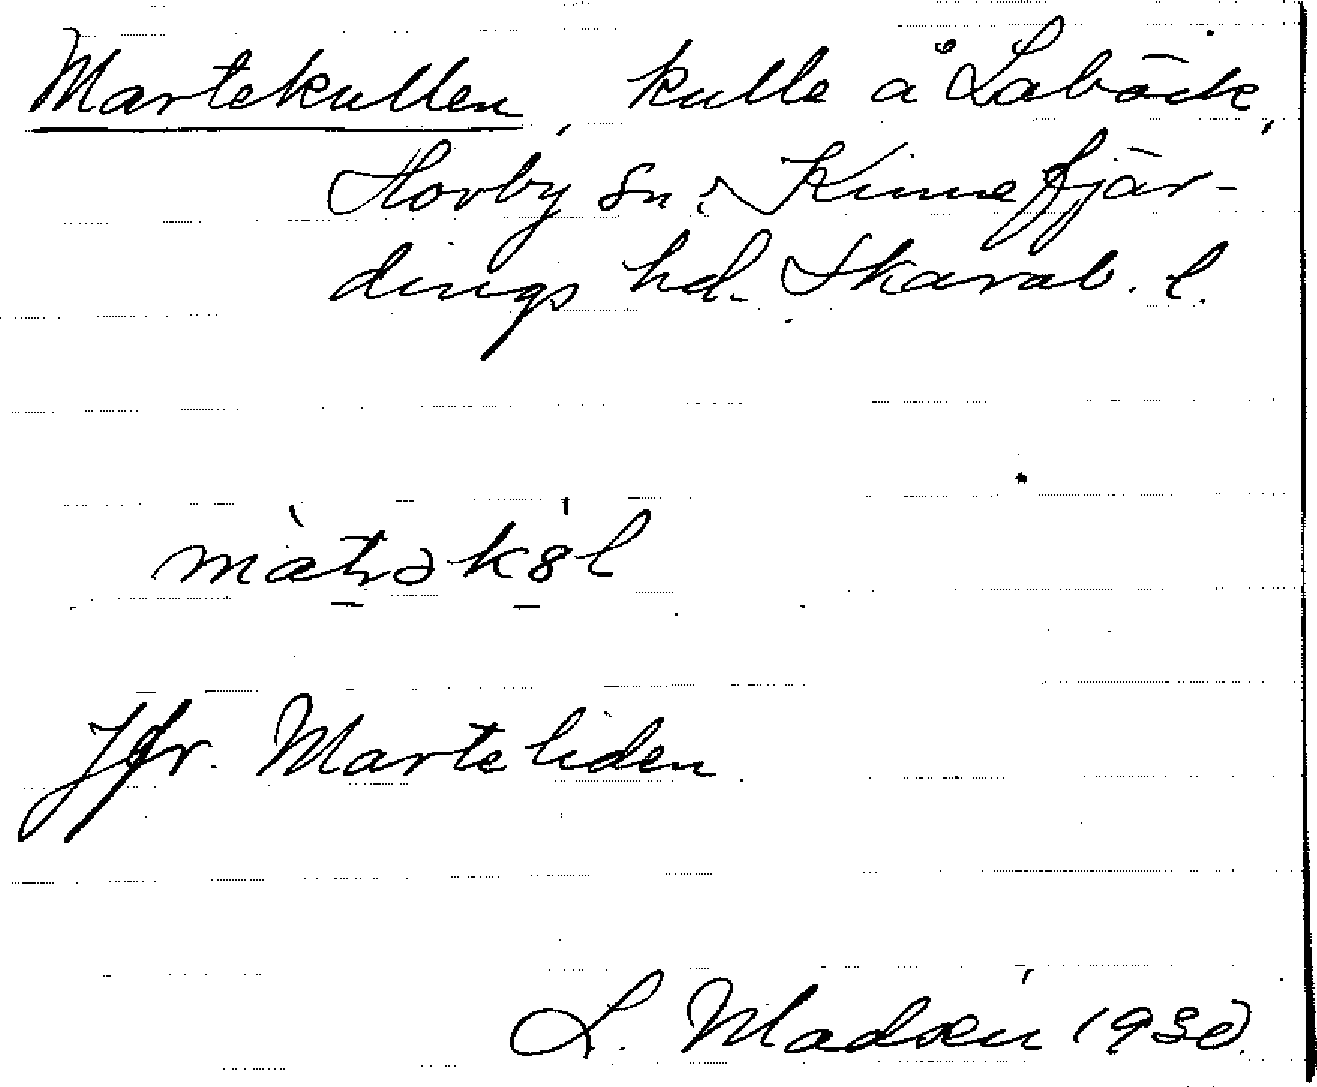 Martekullen, kulle å Labäck,
Hovby sn. Kinnefjär-
dings hd. Skarab. l.
Jfr. Marteliden
L. Madsén 1930